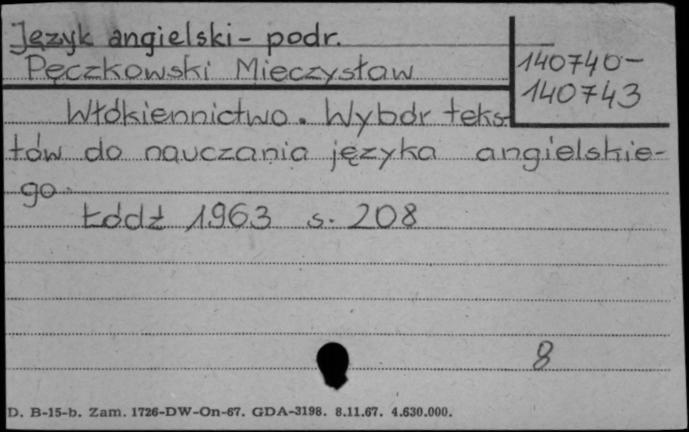 Język angielski - podr.
Pęczkowski Mieczysław
140740-
140743
Włókiennictwo. Wybór teks-
tów do nauczania języka angielskie-
go.
Łódź 1963 s. 208
8
D. B-15-b. Zam. 1726-DW-On-67. GDA-3198. 8.11.67. 4.630.000.